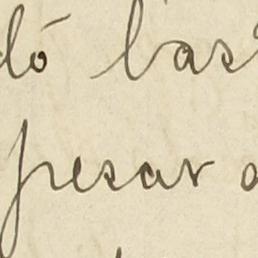 dó bas
pesar a